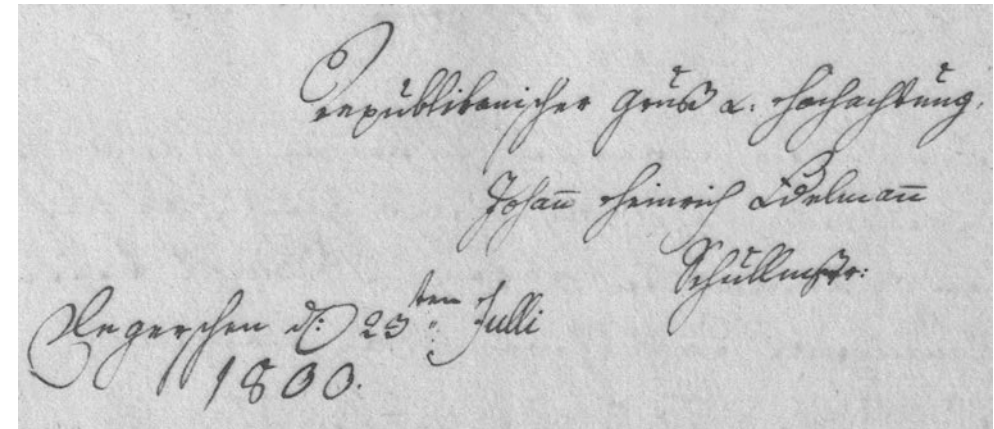 republikanischer Gruß u: Hochachtung.
Johan̅ Heinrich Edelman̅
Schullmstr:
Degerschen d: 23ten Julli
1800.